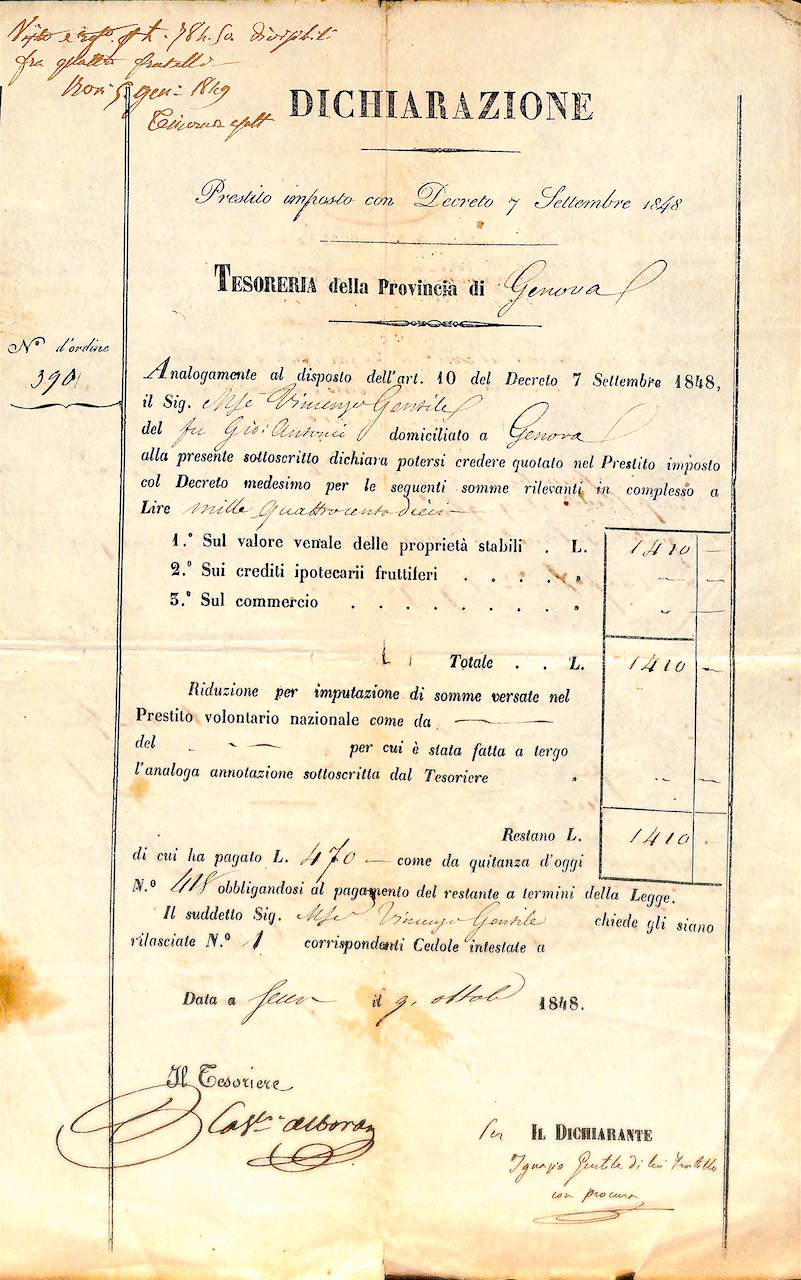 divisibili
fra quattro fratelli
5 gen: 1849
DICHIARAZIONE
Prestito imposto con Decreto 7 Settembre 1848
TESORERIA della Provincia di Genova
N° d'ordine
390
Analogamente al disposto dell'art. 10 del Decreto 7 Settembre 1848,
il Sig. Mse Vincenzo Gentile
del fu Gio: Antonio domiciliato a Genova
alla presente sottoscritto dichiara potersi credere quotato nel Prestito imposto
col Decreto medesimo per le seguenti somme rilevanti in complesso a
Lire mille quattrocento dieci
1.° Sul valore venale delle proprietà stabili . L. 1410 —
2.° Sui crediti ipotecarii fruttiferi . . . . . „ — —
3.° Sul commercio . . . . . . . . . „ „ —
Totale . . L. 1410 —
Riduzione per imputazione di somme versate nel
Prestito volontario nazionale come da —
del — per cui è stata fatta a tergo
l'analoga annotazione sottoscritta dal Tesoriere „ — —
Restano L. 1410 -
di cui ha pagato L. 470 — come da quitanza d'oggi
N.° 418 obbligandosi al pagamento del restante a termini della Legge.
Il suddetto Sig. Mse Vincenzo Gentile chiede gli siano
rilasciate N.° 1 corrispondenti Cedole intestate a
Data a il 9. ottob 1848.
Il Tesoriere
Per IL DICHIARANTE
Ignazio Gentile di lui fratello
con procura